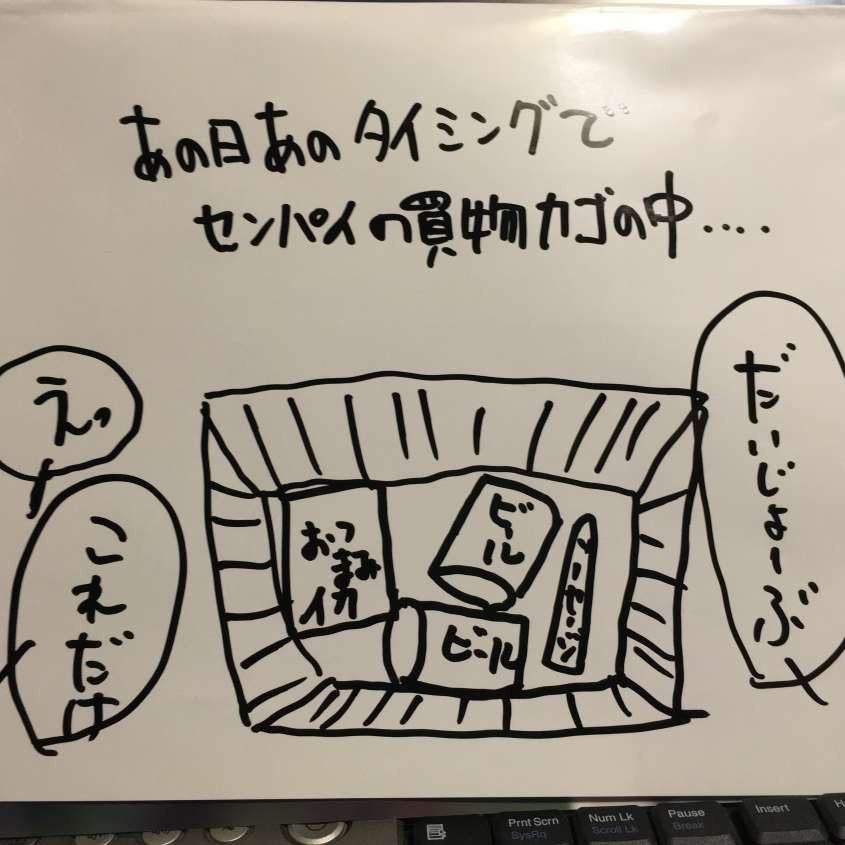 あの日あのタイミングで
センパイの買物カゴの中....
えっ
これだけ
だいじょーぶ
おつ
まみ
イカ
ビール
ビール
ソーセージ
Prnt Scrn
SysRq
Num Lk
Scroll Lk
Pause
Break
Insert